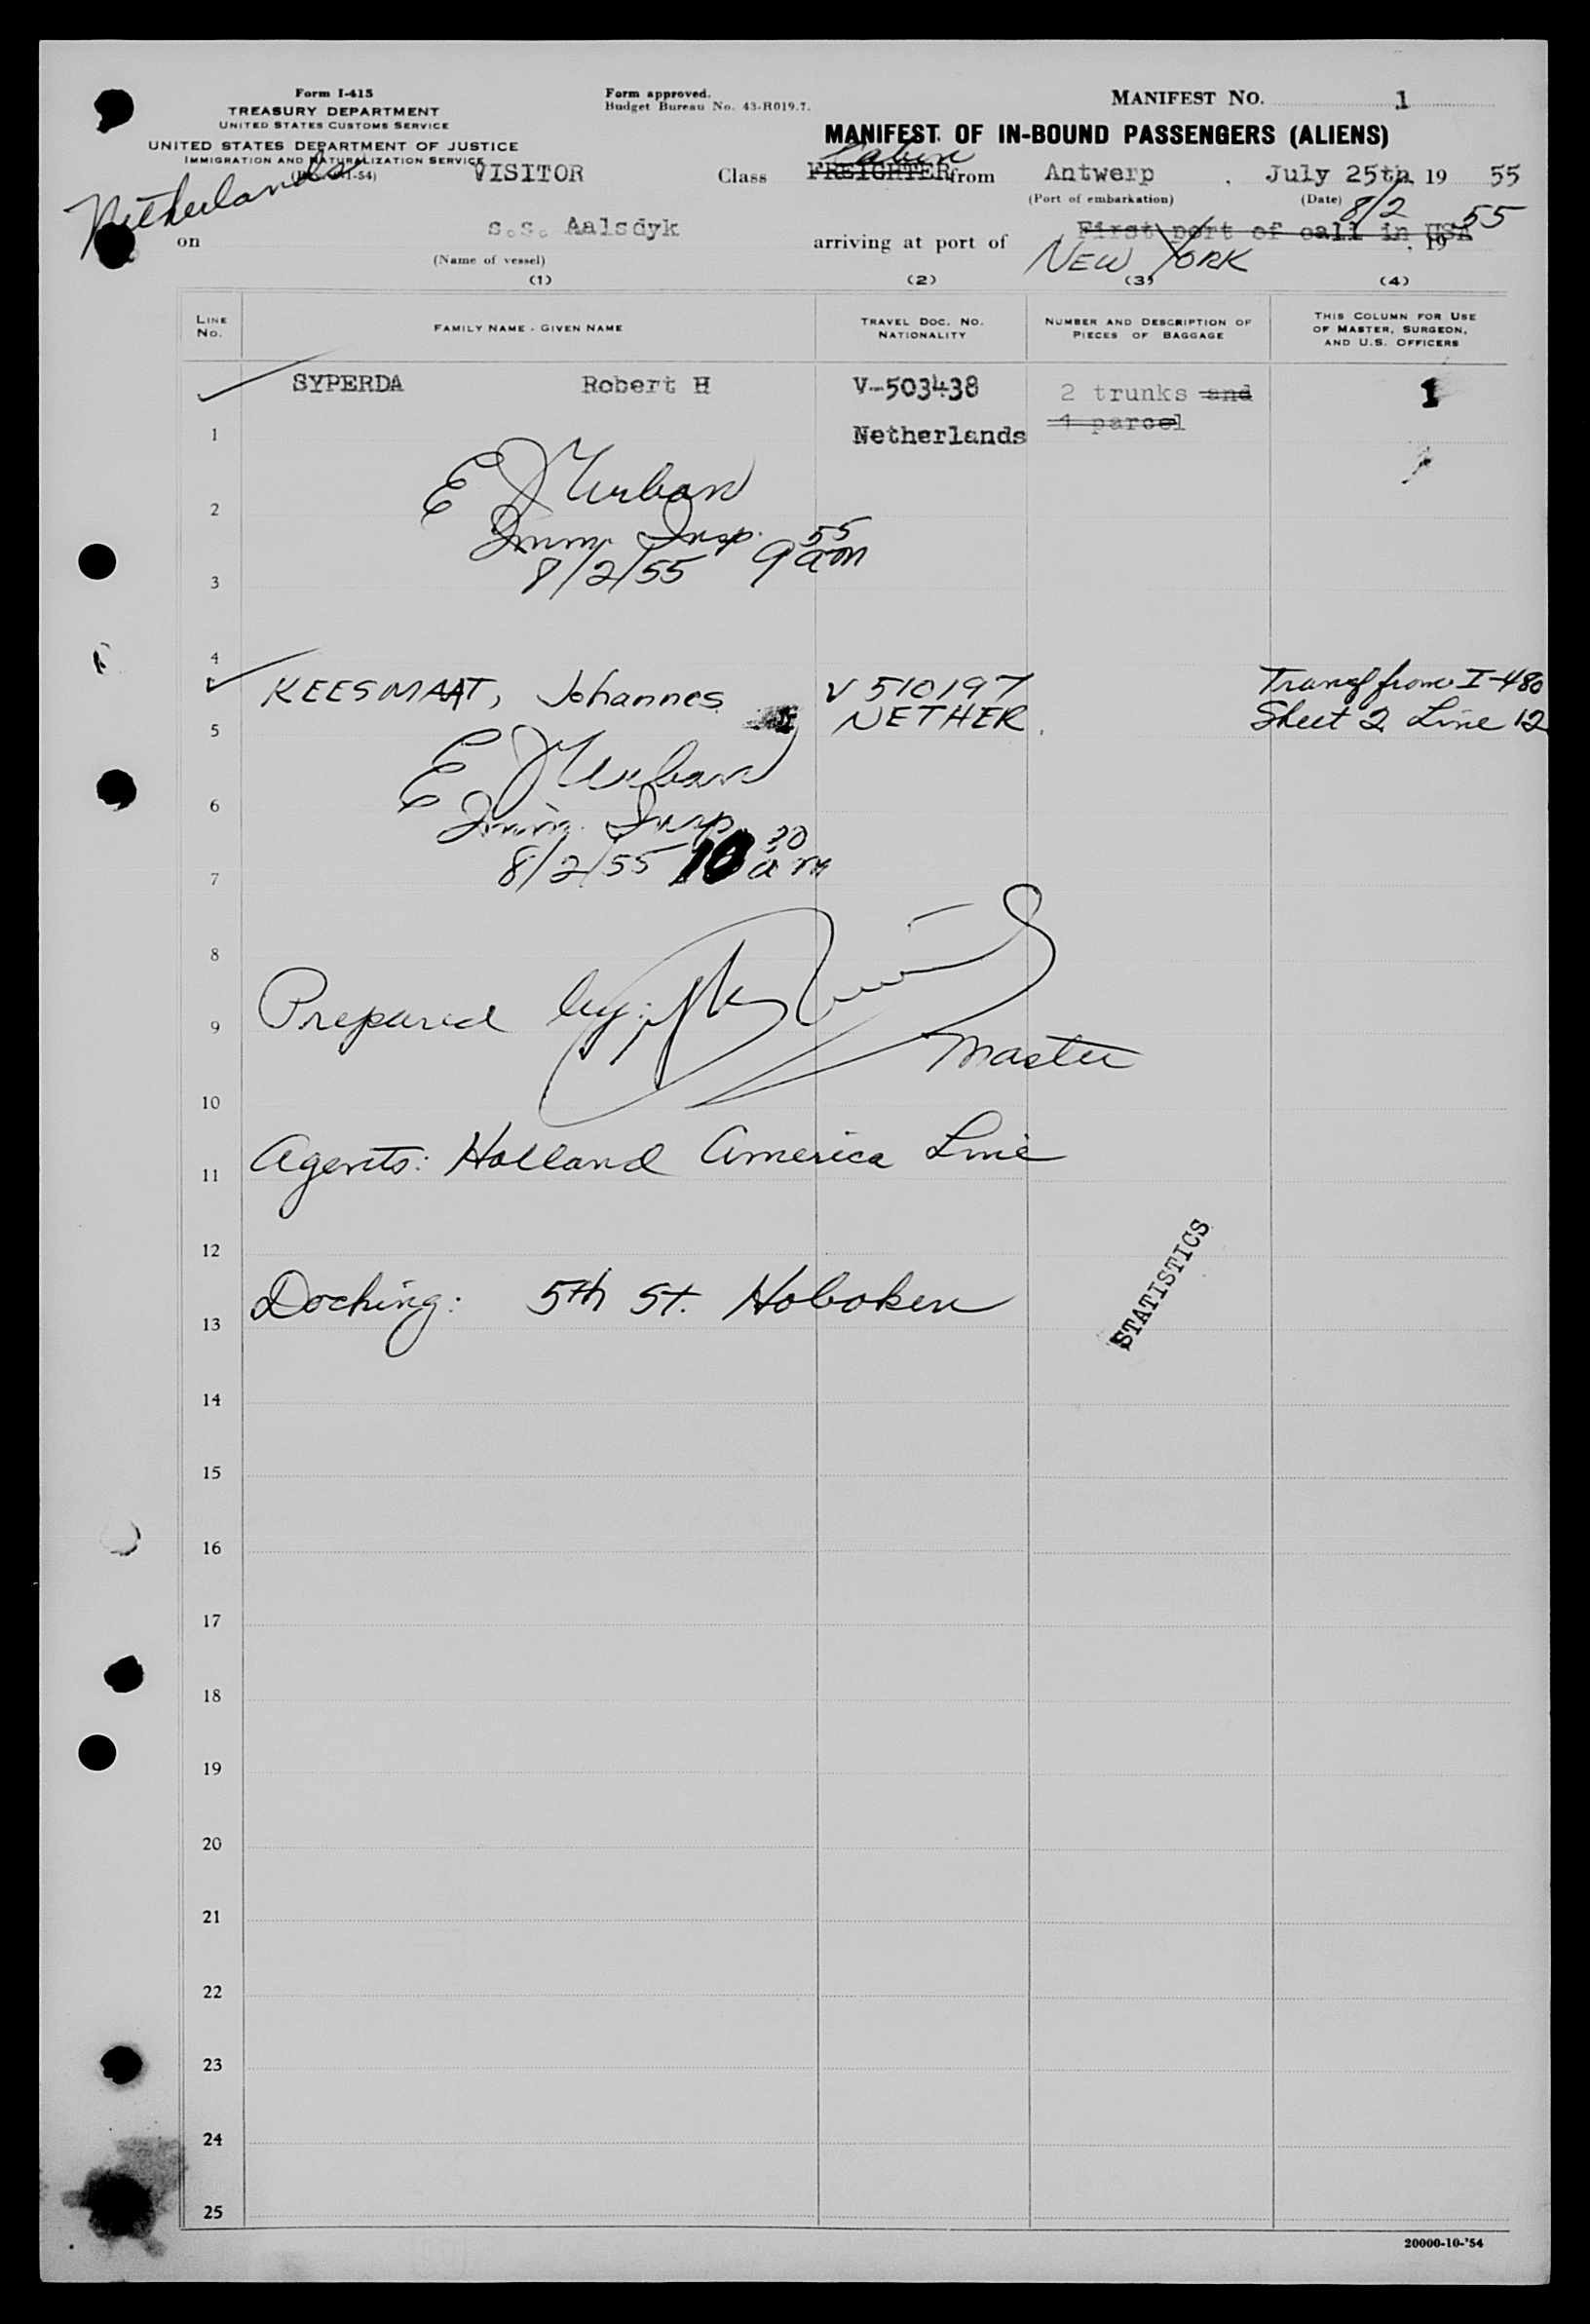 Form I-415
TREASURY DEPARTMENT
UNITED STATES CUSTOMS SERVICE
UNITED STATES DEPARTMENT OF JUSTICE
IMMIGRATION AND NATURALIZATION SERVICE
Form approved.
Budget Bureau No. 43-R019.7.
MANIFEST NO. 1
MANIFEST OF IN-BOUND PASSENGERS (ALIENS)
Netherlands
Cabin
VISITOR Class FREIGHTER from Antwerp , July 25th, 19 55
(Port of embarkation) (Date)
8/2 55
on s.s. Aalsdyk arriving at port of First port of call in USA , 19
(Name of vessel)
NEW YORK
(1) (2) (3) (4)
LINE NO.
FAMILY NAME - GIVEN NAME
TRAVEL DOC. NO. NATIONALITY
NUMBER AND DESCRIPTION OF PIECES OF BAGGAGE
THIS COLUMN FOR USE OF MASTER, SURGEON, AND U.S. OFFICERS
SYPERDA Robert H V-503438 2 trunks and 1
1 Netherlands 1 parcel
E J Urban
2
Imm. Insp. 9 55 am
8/2/55
3
4
KEESMAAT, Johannes V 510197 Transf from I-480
5 NETHER. Sheet 2 Line 12
E J Urban
6
Imm. Insp.
8/2/55 10 30 am
7
8
9 Prepared by:
Master
10
11 Agents: Holland America Line
12
13 Docking: 5th St. Hoboken
STATISTICS
14
15
16
17
18
19
20
21
22
23
24
25
20000-10-'54